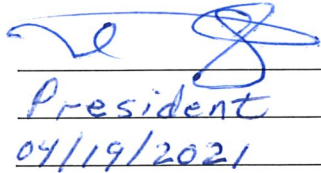 President
04/19/2021